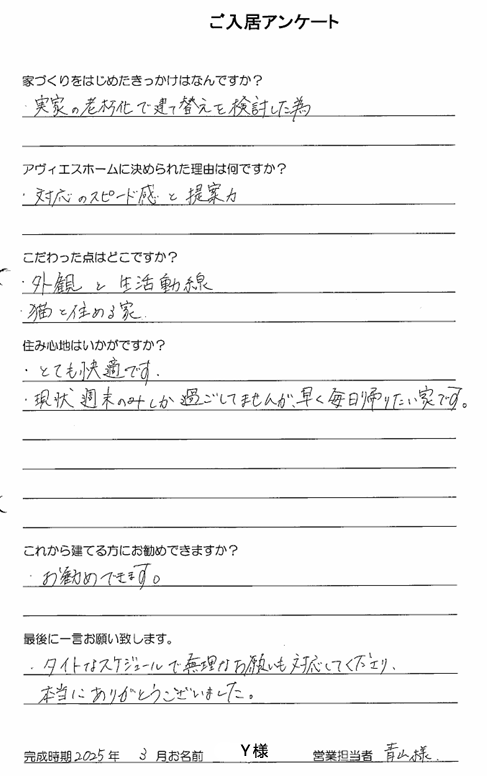 ご入居アンケート
家づくりをはじめたきっかけはなんですか？
・実家の老朽化で建て替えを検討した為
アヴィエスホームに決められた理由は何ですか？
・対応のスピード感と提案力
こだわった点はどこですか？
・外観と生活動線
・猫と住める家
住み心地はいかがですか？
・とても快適です。
・現状週末のみしか過ごしてませんが、早く毎日帰りたい家です。
これから建てる方にお勧めできますか？
・お勧めできます。
最後に一言お願い致します。
・タイトなスケジュールで無理なお願いも対応してくださり、
本当にありがとうございました。
完成時期 2025年 3月 お名前 Y様 営業担当者 青山様